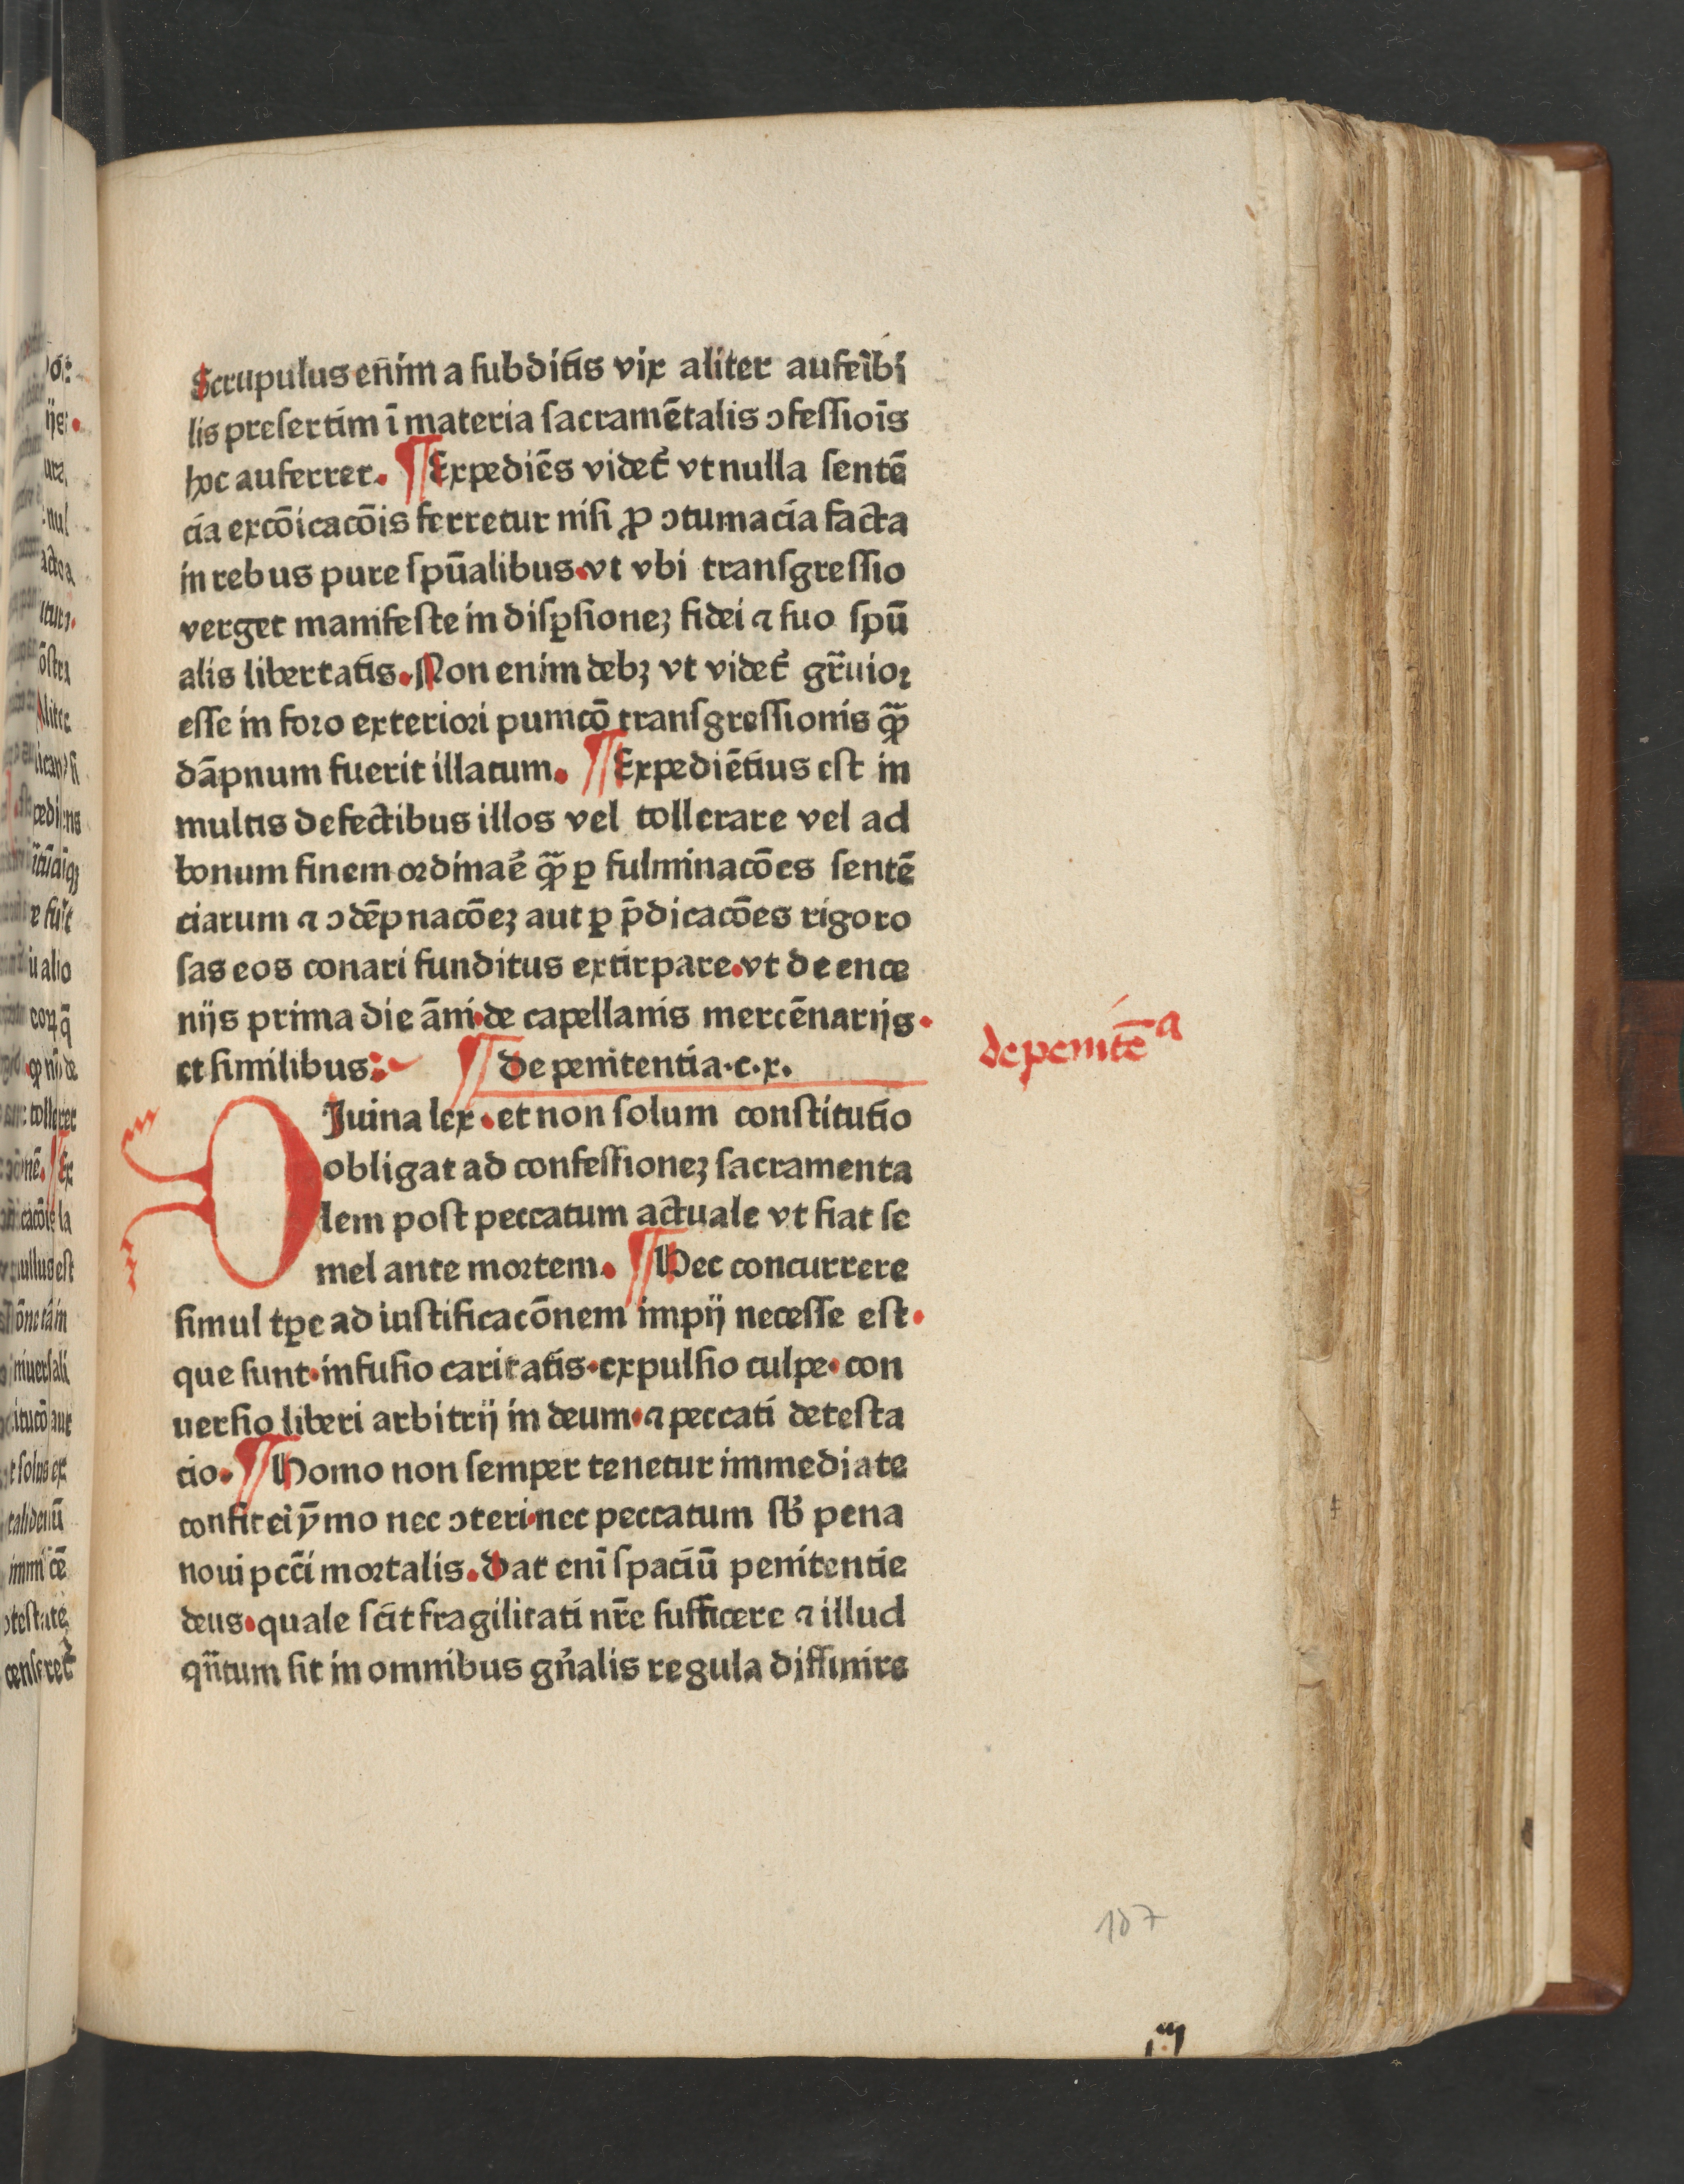 Scrupulus enĩm a ſubditis vix aliter aufeĩbi
lis preſertim ĩ materia ſacramẽtalis ↄfeſſiõis
hoc auferret. ¶ Expediẽs videt᷑ vt nulla ſentẽ
cia excõicacõis ferretur niſi ꝓ ↄtumacia facta
in rebus pure ſpũalibus.vt vbi tranſgreſſio
verget manifeſte in diſꝑſioneꝫ fidei ⁊ ſuo ſpũ
alis libertatis. Non enim debꝫ vt videt᷑ gr̃uioꝛ
eſſe in foꝛo exterioꝛi punicõ tranſgreſſionis ꝙ̃
dãpnum fuerit illatum. ¶ Expediẽtius eſt in
multis defectibus illos vel tollerare vel ad
bonum finem oꝛdinaꝛ̃e ꝙ̃ ꝑ fulminacões ſentẽ
ciarum ⁊ ↄdẽpnacõeꝫ aut ꝑ p̃dicacões rigoro
ſas eos conari funditus extirpare.vt de ence
nijs prima die ãni.de capellanis mercẽnarijs.
et ſimilibus: ¶ De penitentia.c.x.
de penitẽᵃ
DJuina lex.et non ſolum conſtitutio
obligat ad confeſſioneꝫ ſacramenta
lem poſt peccatum actuale vt fiat ſe
mel ante moꝛtem. ¶ Hec concurrere
ſimul tꝑe ad iuſtificacõnem impij neceſſe eſt.
que ſunt.infuſio caritatis.expulſio culpe.con
uerſio liberi arbitrij in deum.⁊ peccati deteſta
cio. ¶ Homo non ſemper tenetur immediate
confiteri ỹmo nec ↄteri.nec peccatum ſb̃ pena
noui pcc̃i moꝛtalis. Dat enĩ ſpaciũ penitentie
deus.quale ſcit fragilitati nr̃e ſufficere ⁊ illud
qñtum ſit in omnibus gñalis regula diffinire
187